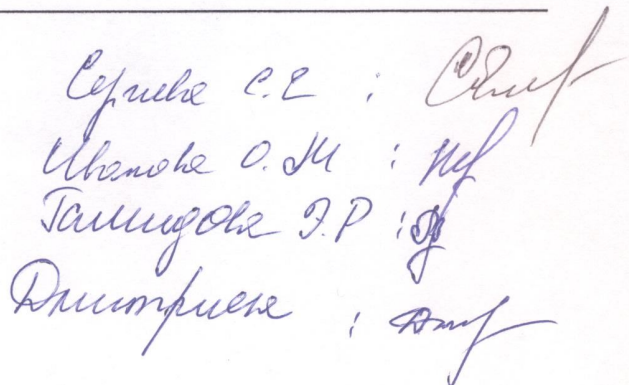 Сергиева С.Е :
Иванова О.М :
Гамидова Э.Р :
Дмитриева :